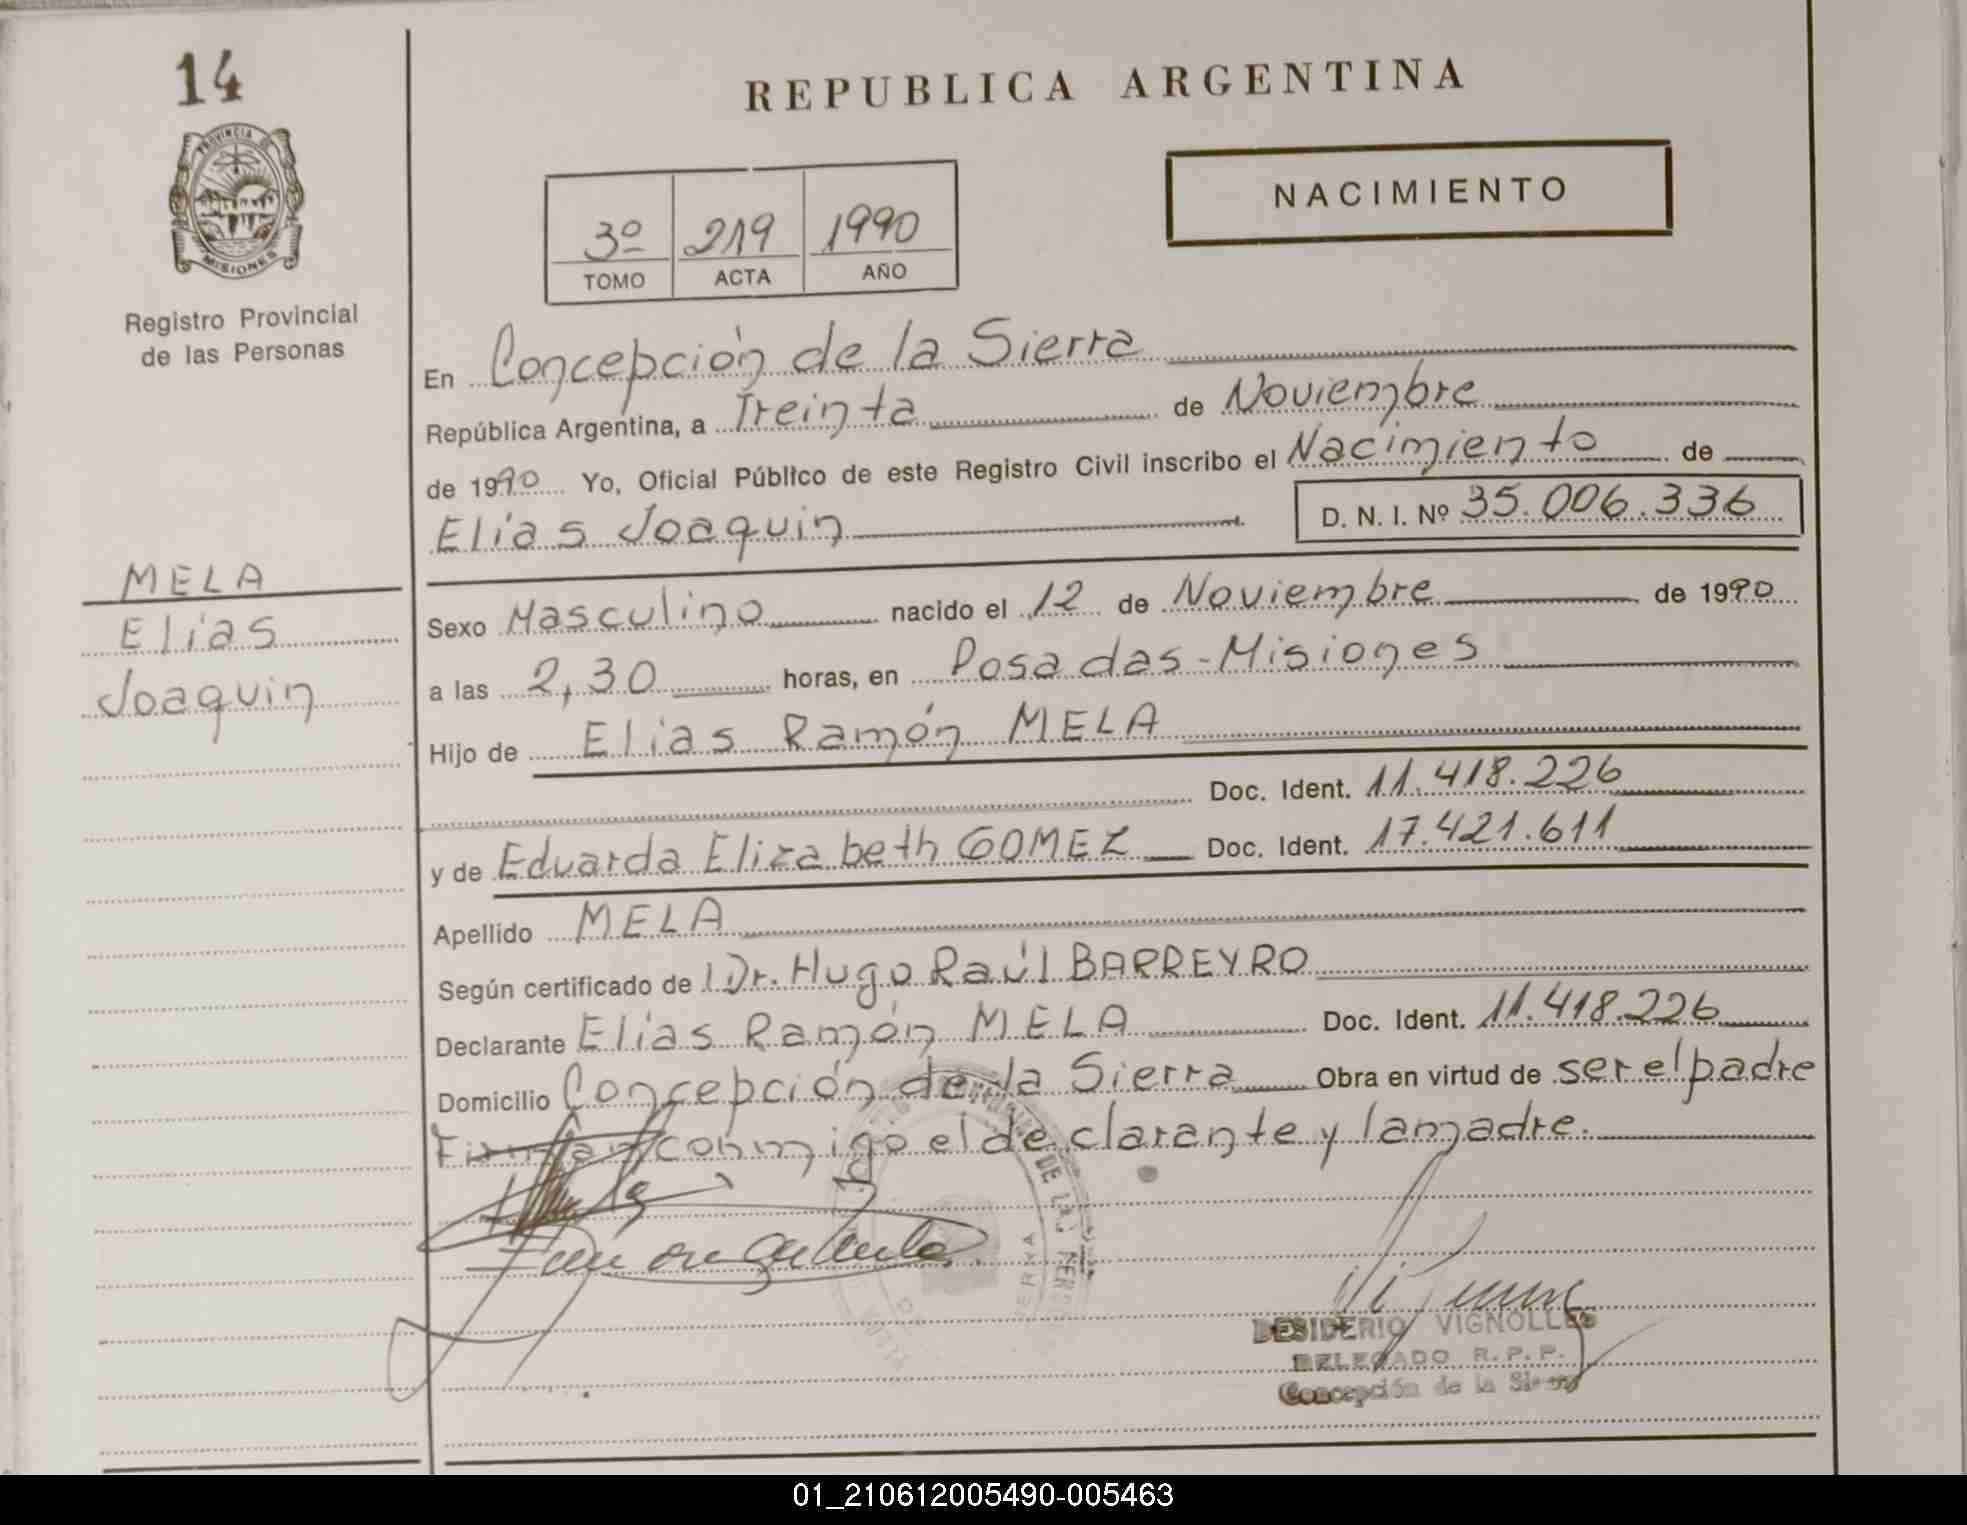 14
REPUBLICA ARGENTINA
PROVINCIA DE
MISIONES
NACIMIENTO
3º 219 1990
TOMO ACTA AÑO
Registro Provincial
de las Personas
En Concepción de la Sierra
República Argentina, a Treinta de Noviembre
de 1990 Yo, Oficial Público de este Registro Civil inscribo el Nacimiento de
Elias Joaquin D. N. I. Nº 35.006.336
MELA
Elias
Joaquin
Sexo Masculino nacido el 12 de Noviembre de 1990
a las 2,30 horas, en Posadas-Misiones
Hijo de Elias Ramón MELA
Doc. Ident. 11.418.226
y de Eduarda Elizabeth GOMEZ Doc. Ident. 17.421.611
Apellido MELA
Según certificado de l Dr. Hugo Raúl BARREYRO
Declarante Elias Ramón MELA Doc. Ident. 11.418.226
Domicilio Concepción de la Sierra Obra en virtud de ser el padre
Firman conmigo el declarante y la madre.
DESIDERIO VIGNOLLES
DELEGADO R.P.P.
Concepción de la Sierra
01_210612005490-005463